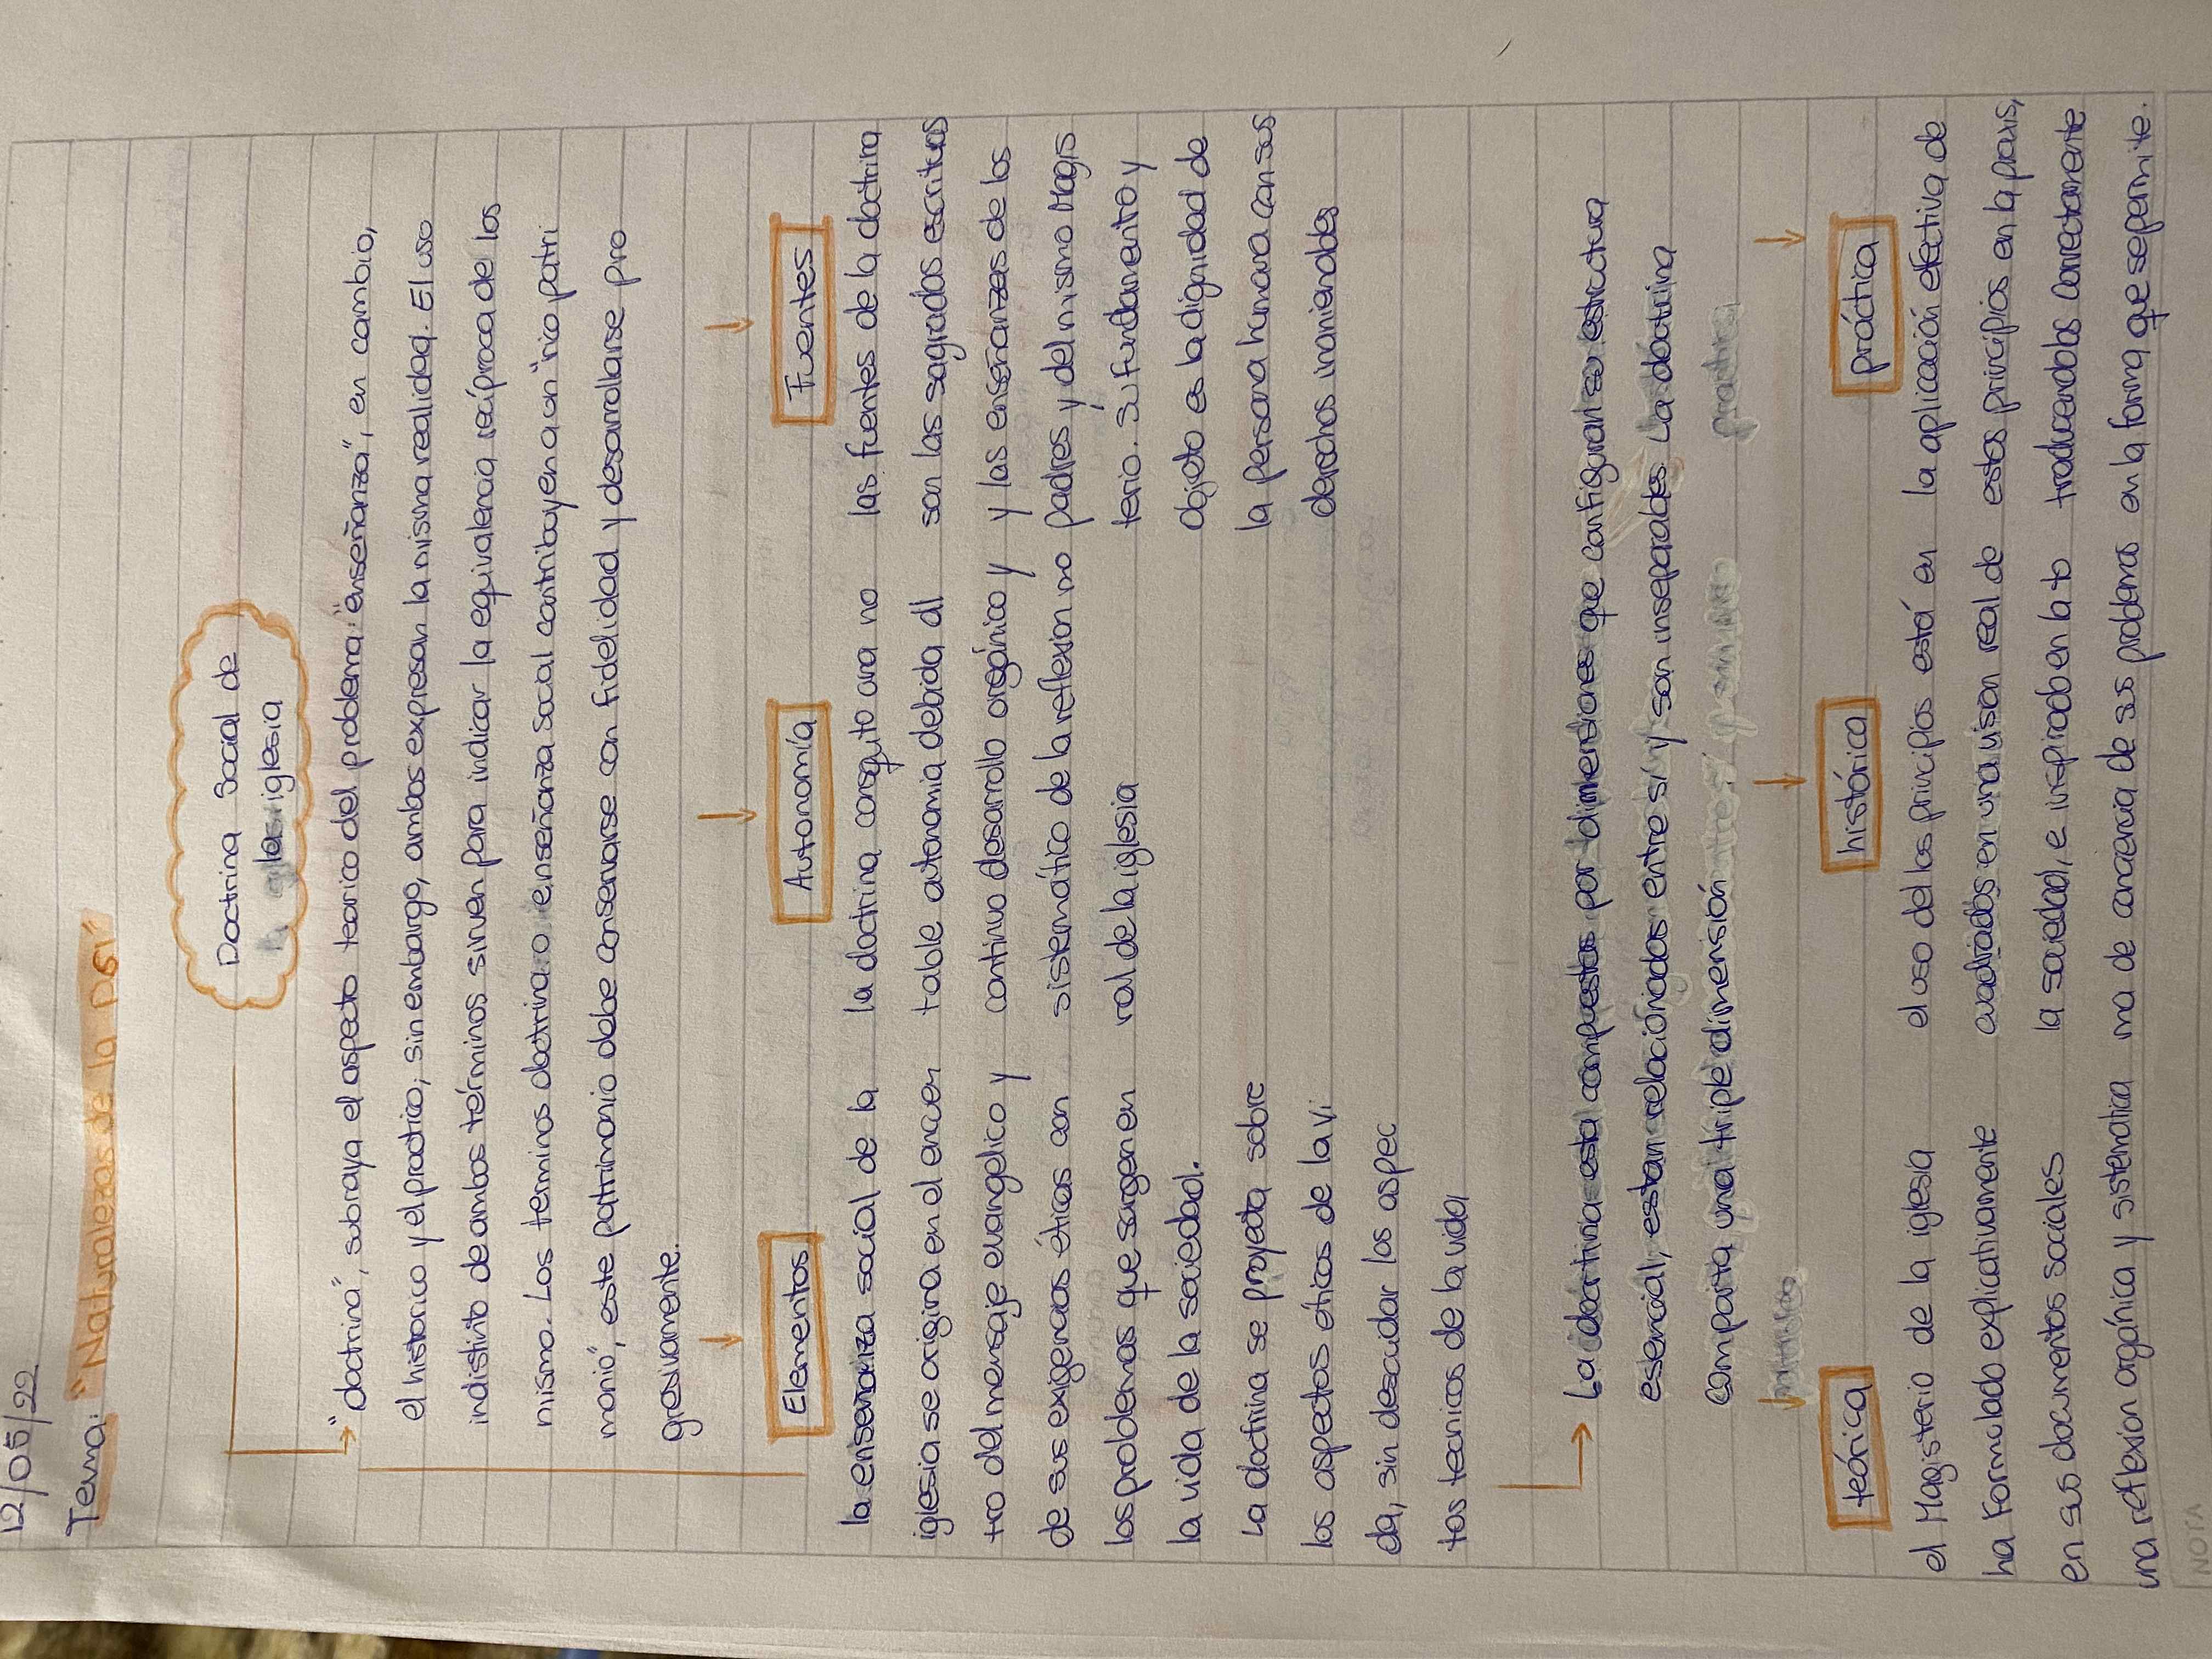 12/05/22
Tema: "Naturalezas de la DSI"
Doctrina Social de
la iglesia
"doctrina", subraya el aspecto teorico del problema: "enseñanza", en cambio,
el historico y el practico, sin embargo, ambos expresan la misma realidad. El uso
indistinto de ambos términos sirven para indicar la equivalencia recíproca de los
mismo. Los terminos doctrina o enseñanza social contribuyen a un "rico patri
monio", este patrimonio debe conservarse con fidelidad y desarrollarse pro
gresivamente.
Elementos
la enseñanza social de la
iglesia se origina en el encuen
tro del mensaje evangelico y
de sus exigencias éticas con
los problemas que surgen en
la vida de la sociedad.
La doctrina se proyecta sobre
los aspectos éticos de la vi
da, sin descuidar los aspec
tos tecnicos de la vida
Autonomía
la doctrina consguito una no
table autonomia debida al
continuo desarrollo orgánico y
sistemático de la reflexion mo
ral de la iglesia
Fuentes
las fuentes de la doctrina
son las sagradas escrituras
y las enseñanzas de los
padres y del mismo Magis
terio. Su fundamento y
objeto es la dignidad de
la persona humana con sus
derechos inanienables
La doctrina esta compuestas por dimensiones que configuran su estructura
esencial, estan relacionadas entre sí y son inseparables. La doctrina
comparta una triple dimensión
teórica
el Magisterio de la iglesia
ha formulado explicativamente
en sus documentos sociales
una reflexion orgánica y sistematica
histórica
el uso de los principios está en
cuadrados en una vison real de
la sociedad, e inspirado en la to
ma de conciencia de sus problemas
práctica
la aplicación efectiva de
estos principios en la praxis,
traduciendolas correctamente
en la forma que se permite.
NOTA